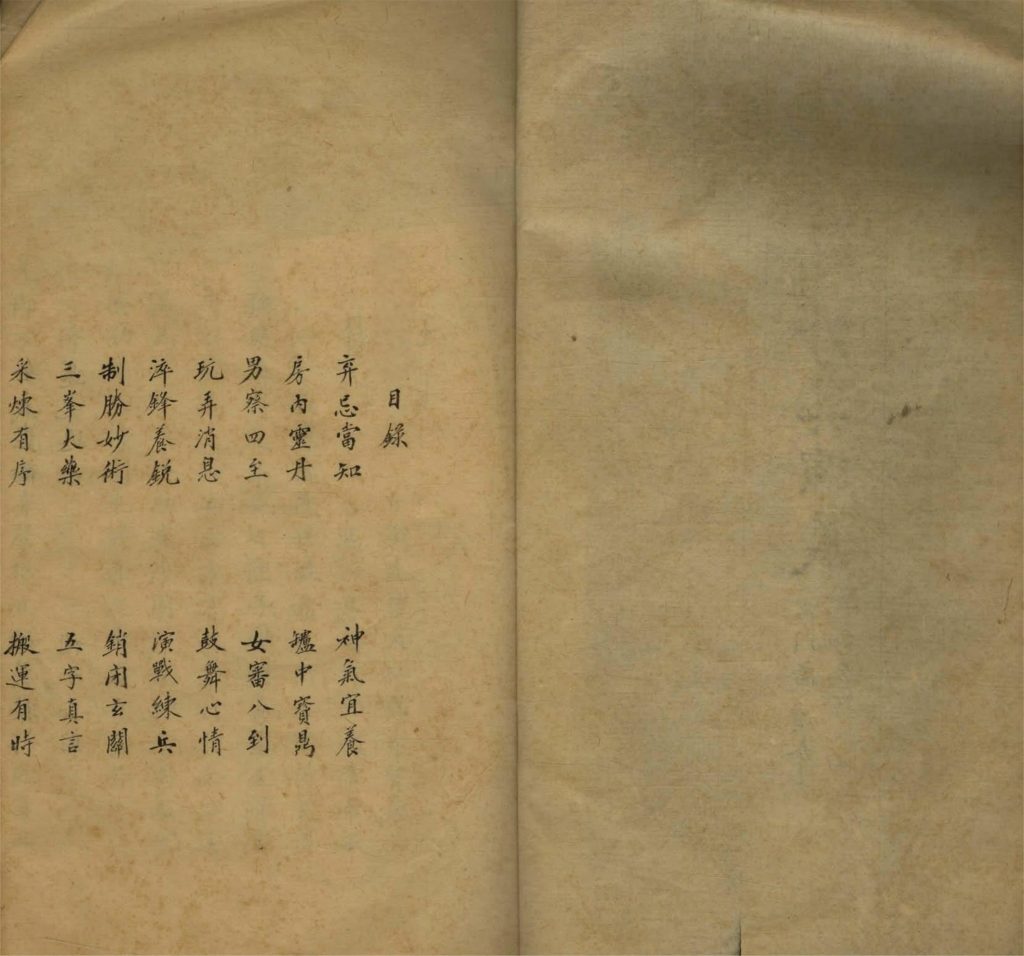 目錄
弃忌當知 神氣宜養
房內靈丹 罏中寶鼎
男察四至 女審八到
玩弄消息 鼓舞心情
淬鋒養銳 演戰練兵
制勝妙術 銷閉玄關
三峯大藥 五字真言
采煉有序 搬運有時